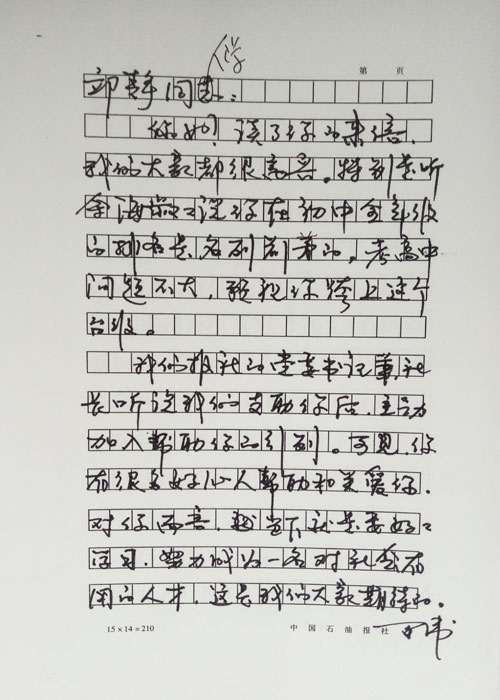 第 页
静同学:
你好!读了你的来信,
我们大家都很高兴。特别是听
说你在初中全年级
的排名是名列前茅的。考高中
问题不大,预祝你跨上这个
台级。
我们报社的党委书记兼社
长听说我们资助你后,主动
加入帮助你的行列。可见,你
有很多好心人帮助和关爱你.
对你而言,当下就是要好好
学习,努力成为一名对社会有
用的人才,这是我们大家期待的。
15×14=210 中国石油报社